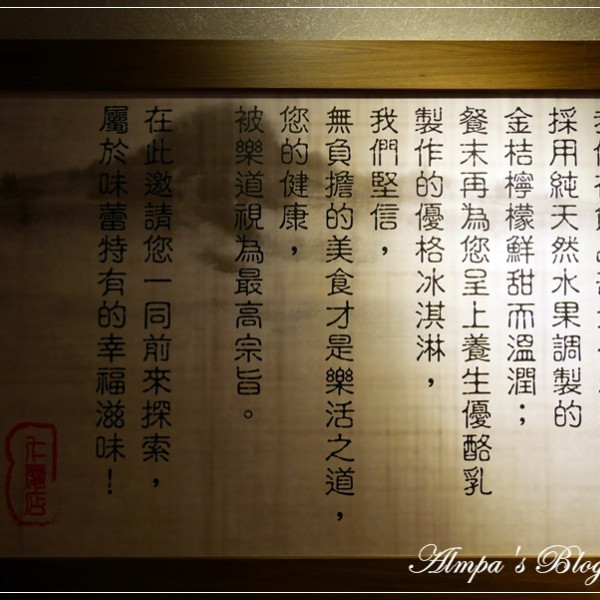 採用純天然水果調製的
金桔檸檬鮮甜而溫潤；
餐末再為您呈上養生優酪乳
製作的優格冰淇淋，
我們堅信，
無負擔的美食才是樂活之道，
您的健康，
被樂道視為最高宗旨。
在此邀請您一同前來探索，
屬於味蕾特有的幸福滋味！
Almpa's Blog